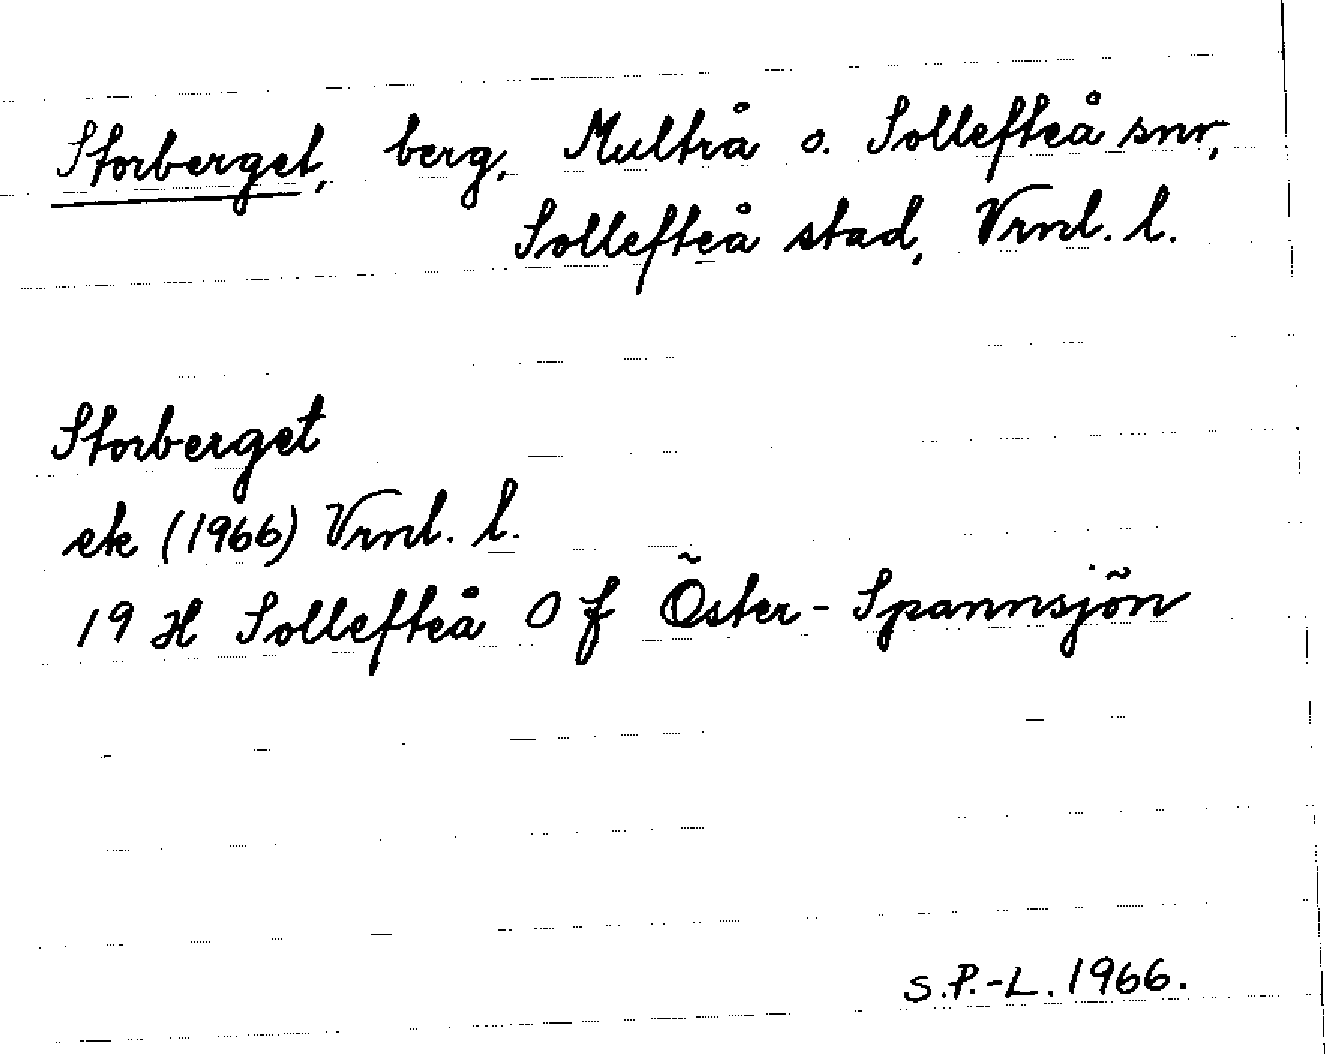 Storberget, berg, Multrå o. Sollefteå snr,
Sollefteå stad, Vrml. l.
Storberget
ek (1966) Vrml. l.
19 H Sollefteå 0 f Öster-Spannsjön
S.P.-L. 1966.